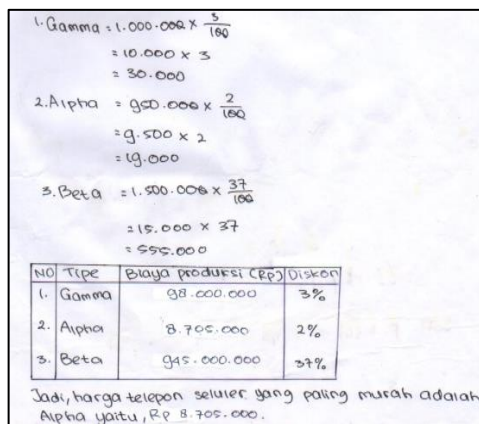 1. Gamma = 1.000.000 × 3/100
= 10.000 × 3
= 30.000
2. Alpha = 950.000 × 2/100
= 9.500 × 2
= 19.000
3. Beta = 1.500.000 × 37/100
= 15.000 × 37
= 555.000
NO Tipe Biaya produksi (Rp) Diskon
1. Gamma 98.000.000 3%
2. Alpha 8.705.000 2%
3. Beta 945.000.000 37%
Jadi, harga telepon seluler yang paling murah adalah
Alpha yaitu, Rp 8.705.000.